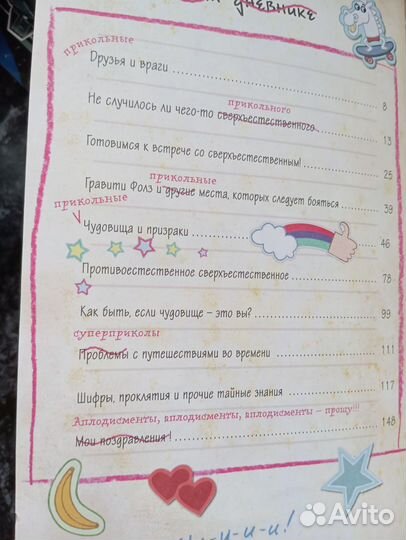 дневнике
прикольные
Друзья и враги 8
прикольного
Не случилось ли чего-то сверхъестественного 13
Готовимся к встрече со сверхъестественным! 25
прикольные
Гравити Фолз и другие места, которых следует бояться 39
прикольные
Чудовища и призраки 46
Противоестественное сверхъестественное 78
Как быть, если чудовище – это вы? 99
суперприколы
Проблемы с путешествиями во времени 111
Шифры, проклятия и прочие тайные знания 117
Аплодисменты, аплодисменты, аплодисменты – прошу!!!
Мои поздравления! 148
и-и-и!
Avito